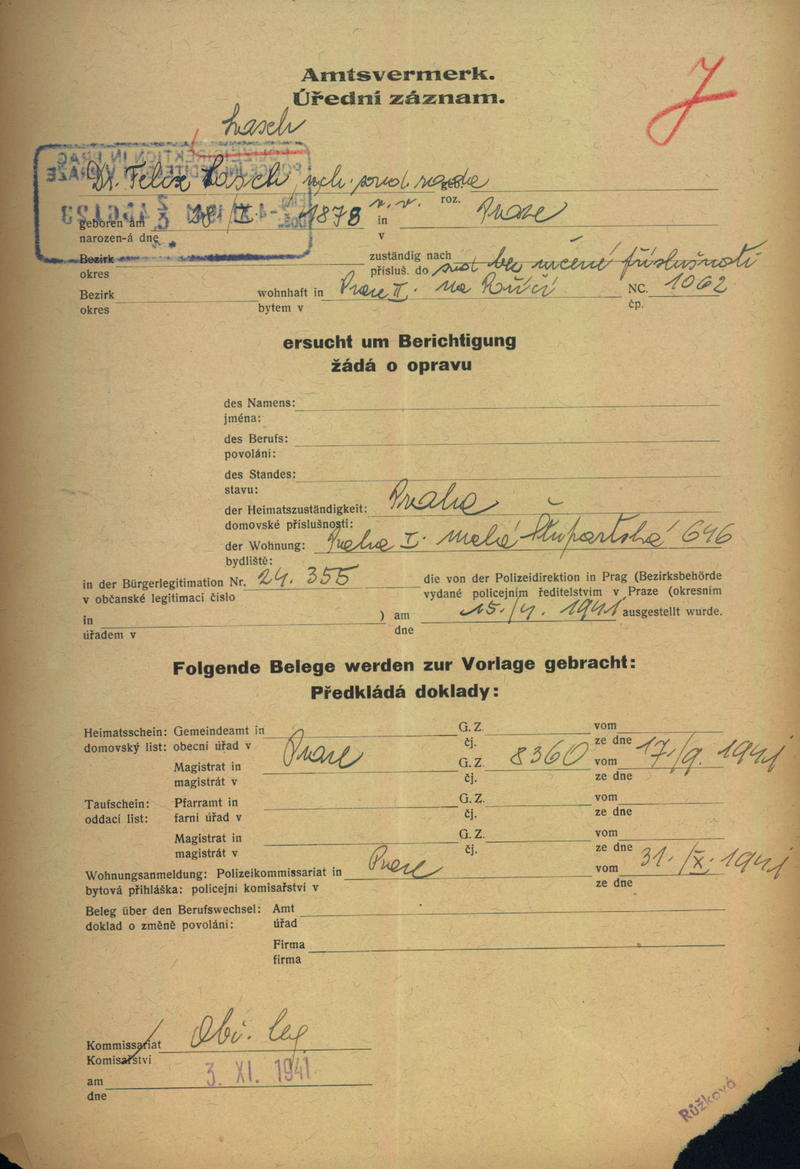 Amtsvermerk.
Úřední záznam.
J
Lasch
Dr. Felix Lasch,
geboren am 1878 in Praze roz.
narozen-á dne v
Bezirk zuständig nach
okres přísluš. do bez určené příslušnosti
Bezirk wohnhaft in Praze II. Na Poříčí NC. 1062
okres bytem v čp.
ersucht um Berichtigung
žádá o opravu
des Namens:
jména:
des Berufs:
povolání:
des Standes:
stavu:
der Heimatszuständigkeit: Praha
domovské příslušnosti:
der Wohnung: Praha I. Malá Štupartská 646
bydliště:
in der Bürgerlegitimation Nr. 24.355 die von der Polizeidirektion in Prag (Bezirksbehörde
v občanské legitimaci číslo vydané policejním ředitelstvím v Praze (okresním
in ) am 15./4. 1941 ausgestellt wurde.
úřadem v dne
Folgende Belege werden zur Vorlage gebracht:
Předkládá doklady:
Heimatsschein: Gemeindeamt in G. Z. vom
domovský list: obecní úřad v Praze čj. ze dne
Magistrat in G. Z. 8360 vom 17./9. 1941
magistrát v čj. ze dne
Taufschein: Pfarramt in G. Z. vom
oddací list: farní úřad v čj. ze dne
Magistrat in G. Z. vom
magistrát v čj. ze dne
Wohnungsanmeldung: Polizeikommissariat in Praze vom 31./X. 1941
bytová přihláška: policejní komisařství v ze dne
Beleg über den Berufswechsel: Amt
doklad o změně povolání: úřad
Firma
firma
Kommissariat Obč. leg
Komisařství
am 3. XI. 1941
dne
Růžková